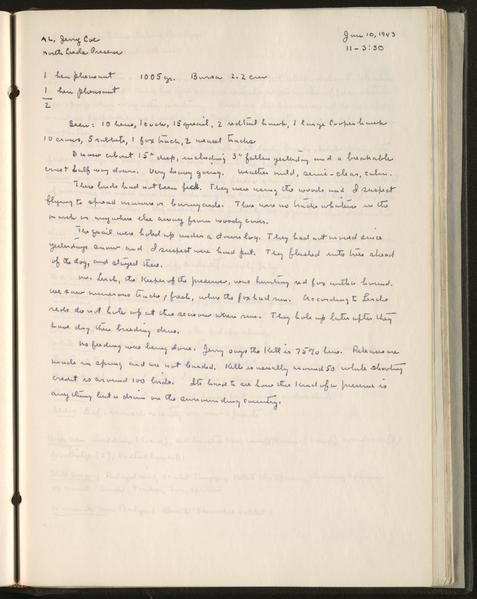 AL, Jerry Coe
North Leeds Preserve
Jan 10, 1943
11 - 3:30
1 hen pheasant 1005 g. Bursa 2.2 cm
1 hen pheasant
2
Seen: 10 hens, 1 cock, 15 quail, 2 redtail hawk, 1 large Coopers hawk
10 crows, 5 rabbits, 1 fox track, 2 weasel tracks
Snow about 15" deep, including 3" fallen yesterday and a breakable
crust half way down. Very heavy going. Weather mild, semi-clear, calm.
These birds had not been fed. They were using the woods and I suspect
flying to spread manure or barnyards. There were no tracks whatever in the
marsh or anywhere else away from woody cover.
The quail were holed up under a down log. They had not moved since
yesterdays snow and I suspect were hard put. They flushed into trees ahead
of the dog, and stayed there.
Mr. the Keeper of the preserve, was hunting red fox with a hound.
We saw numerous tracks, fresh, where the fox had run. According to
reds do not hole up at this season when run. They hole up later after they
have dug their breeding dens.
No feeding was being done. Jerry says the Kill is 75% hens. Releases are
made in spring and are not banded. Kill is usually around 50 while shooting
credit is around 100 birds. Its hard to see how this kind of a preserve is
anything but a drain on the surrounding country.